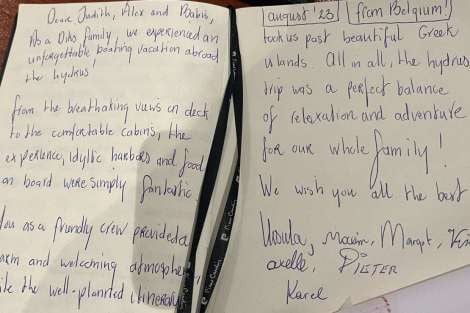 Dear Judith, Alex and Babis,
As a family, we experienced an
unforgettable boating vacation aboard
the hydrus!
From the breathtaking views on deck
to the comfortable cabins, the
experience, idyllic harbors and food
on board were simply fantastic.
You as a friendly crew provided a
warm and welcoming atmosphere
the well-planned itinerary
august '23 from Belgium!
took us past beautiful Greek
islands. All in all, the hydrus
trip was a perfect balance
of relaxation and adventure
for our whole family!
We wish you all the best
Ursula, Maxim, Margot,
axelle, PIETER
Karel